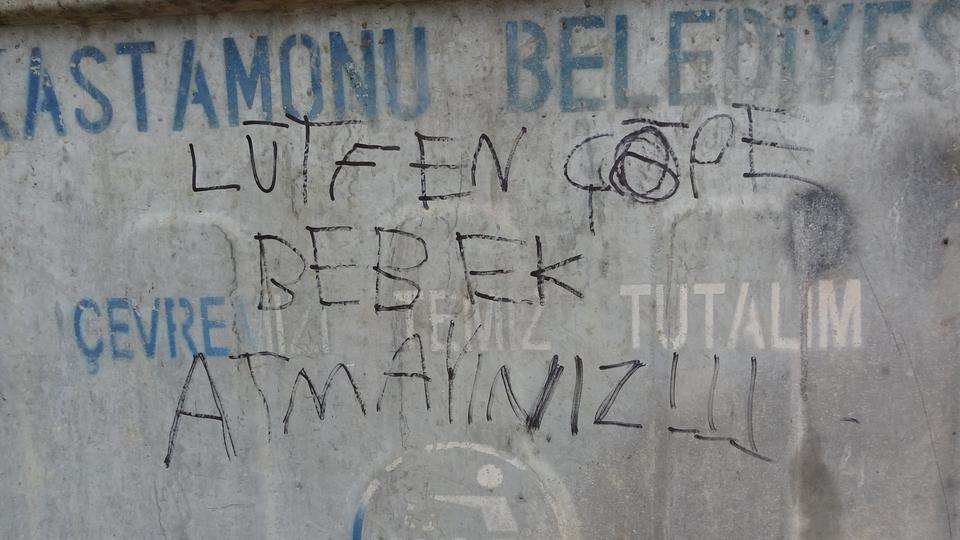 KASTAMONU BELEDİYES
LÜTFEN ÇÖPE
BEBEK
ÇEVREMİZİ TEMİZ TUTALIM
ATMAYINIZ!!!